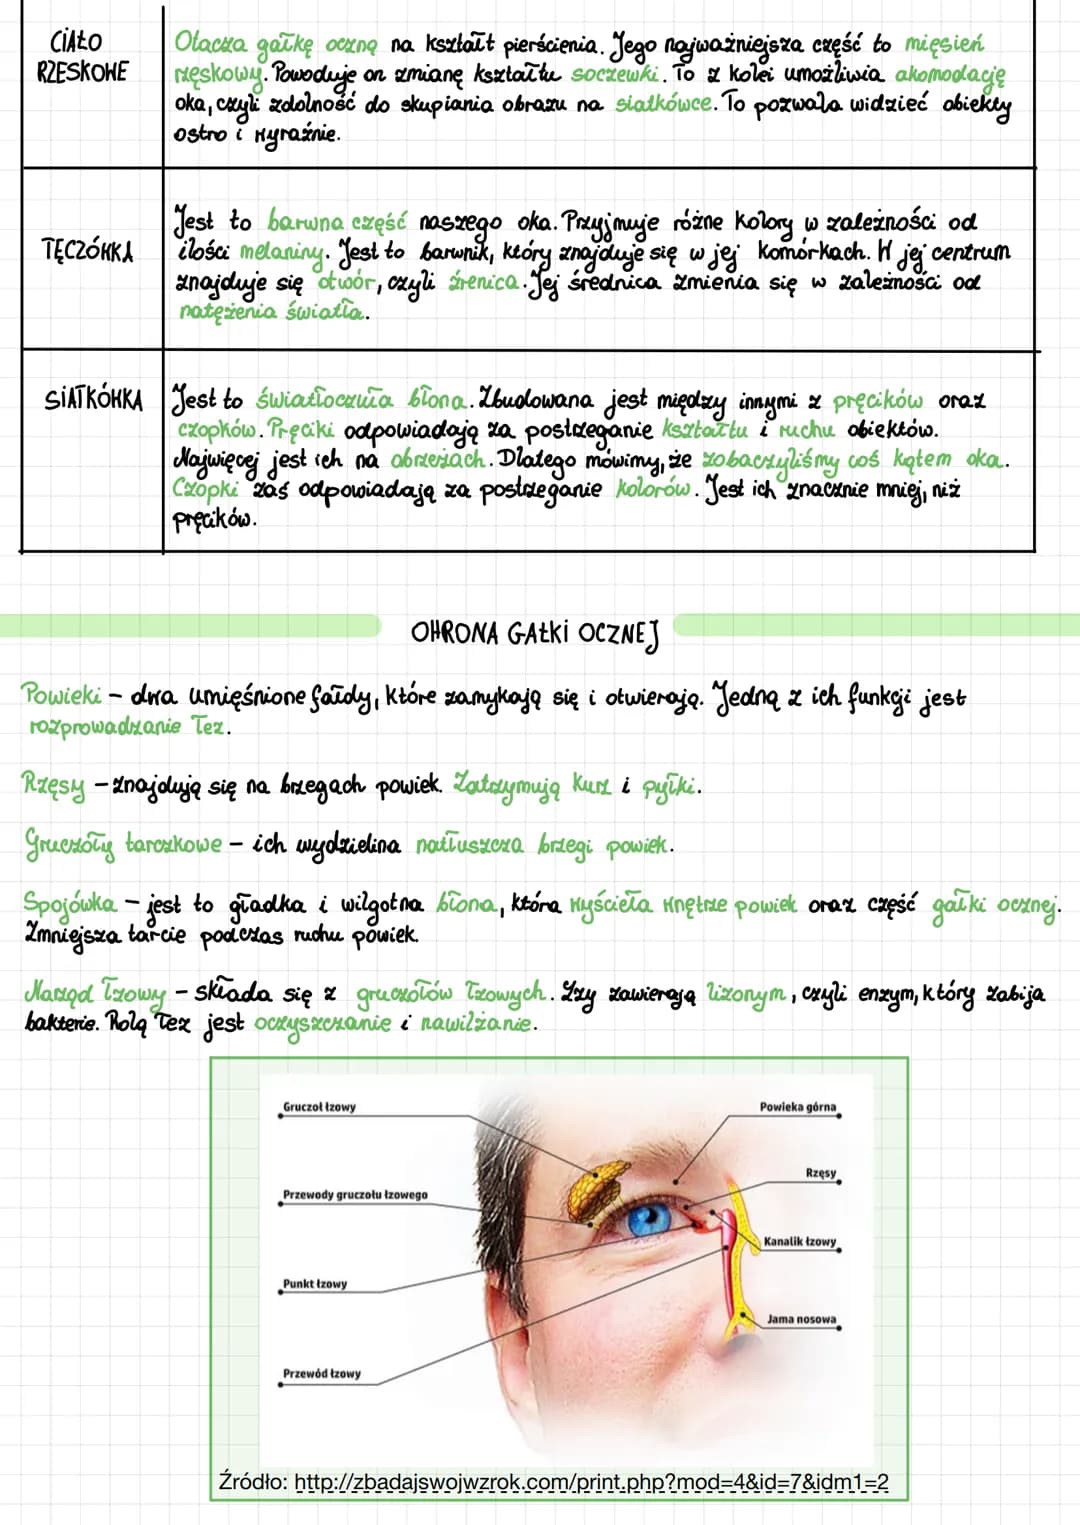 CIAŁO
RZĘSKOWE
Otacza gałkę oczną na kształt pierścienia. Jego najważniejsza część to mięsień
rzęskowy. Powoduje on zmianę kształtu soczewki. To z kolei umożliwia akomodację
oka, czyli zdolność do skupiania obrazu na siatkówce. To pozwala widzieć obiekty
ostro i wyraźnie.
TĘCZÓWKA
Jest to barwna część naszego oka. Przyjmuje różne kolory w zależności od
ilości melaniny. Jest to barwnik, który znajduje się w jej komórkach. W jej centrum
znajduje się otwór, czyli źrenica. Jej średnica zmienia się w zależności od
natężenia światła.
SIATKÓWKA
Jest to światłoczuła błona. Zbudowana jest między innymi z pręcików oraz
czopków. Pręciki odpowiadają za postrzeganie kształtu i ruchu obiektów.
Najwięcej jest ich na obrzeżach. Dlatego mówimy, że zobaczyliśmy coś kątem oka.
Czopki zaś odpowiadają za postrzeganie kolorów. Jest ich znacznie mniej, niż
pręcików.
OHRONA GAŁKI OCZNEJ
Powieki – dwa umięśnione fałdy, które zamykają się i otwierają. Jedną z ich funkcji jest
rozprowadzanie łez.
Rzęsy – znajdują się na brzegach powiek. Zatrzymują kurz i pyłki.
Gruczoły tarczkowe – ich wydzielina natłuszcza brzegi powiek.
Spojówka – jest to gładka i wilgotna błona, która wyścieła wnętrze powiek oraz część gałki ocznej.
Zmniejsza tarcie podczas ruchu powiek.
Narząd łzowy – składa się z gruczołów łzowych. Łzy zawierają lizonym, czyli enzym, który zabija
bakterie. Rolą łez jest oczyszczanie i nawilżanie.
Gruczoł łzowy
Powieka górna
Rzęsy
Przewody gruczołu łzowego
Kanalik łzowy
Punkt łzowy
Jama nosowa
Przewód łzowy
Źródło: http://zbadajswojwzrok.com/print.php?mod=4&id=7&idm1=2